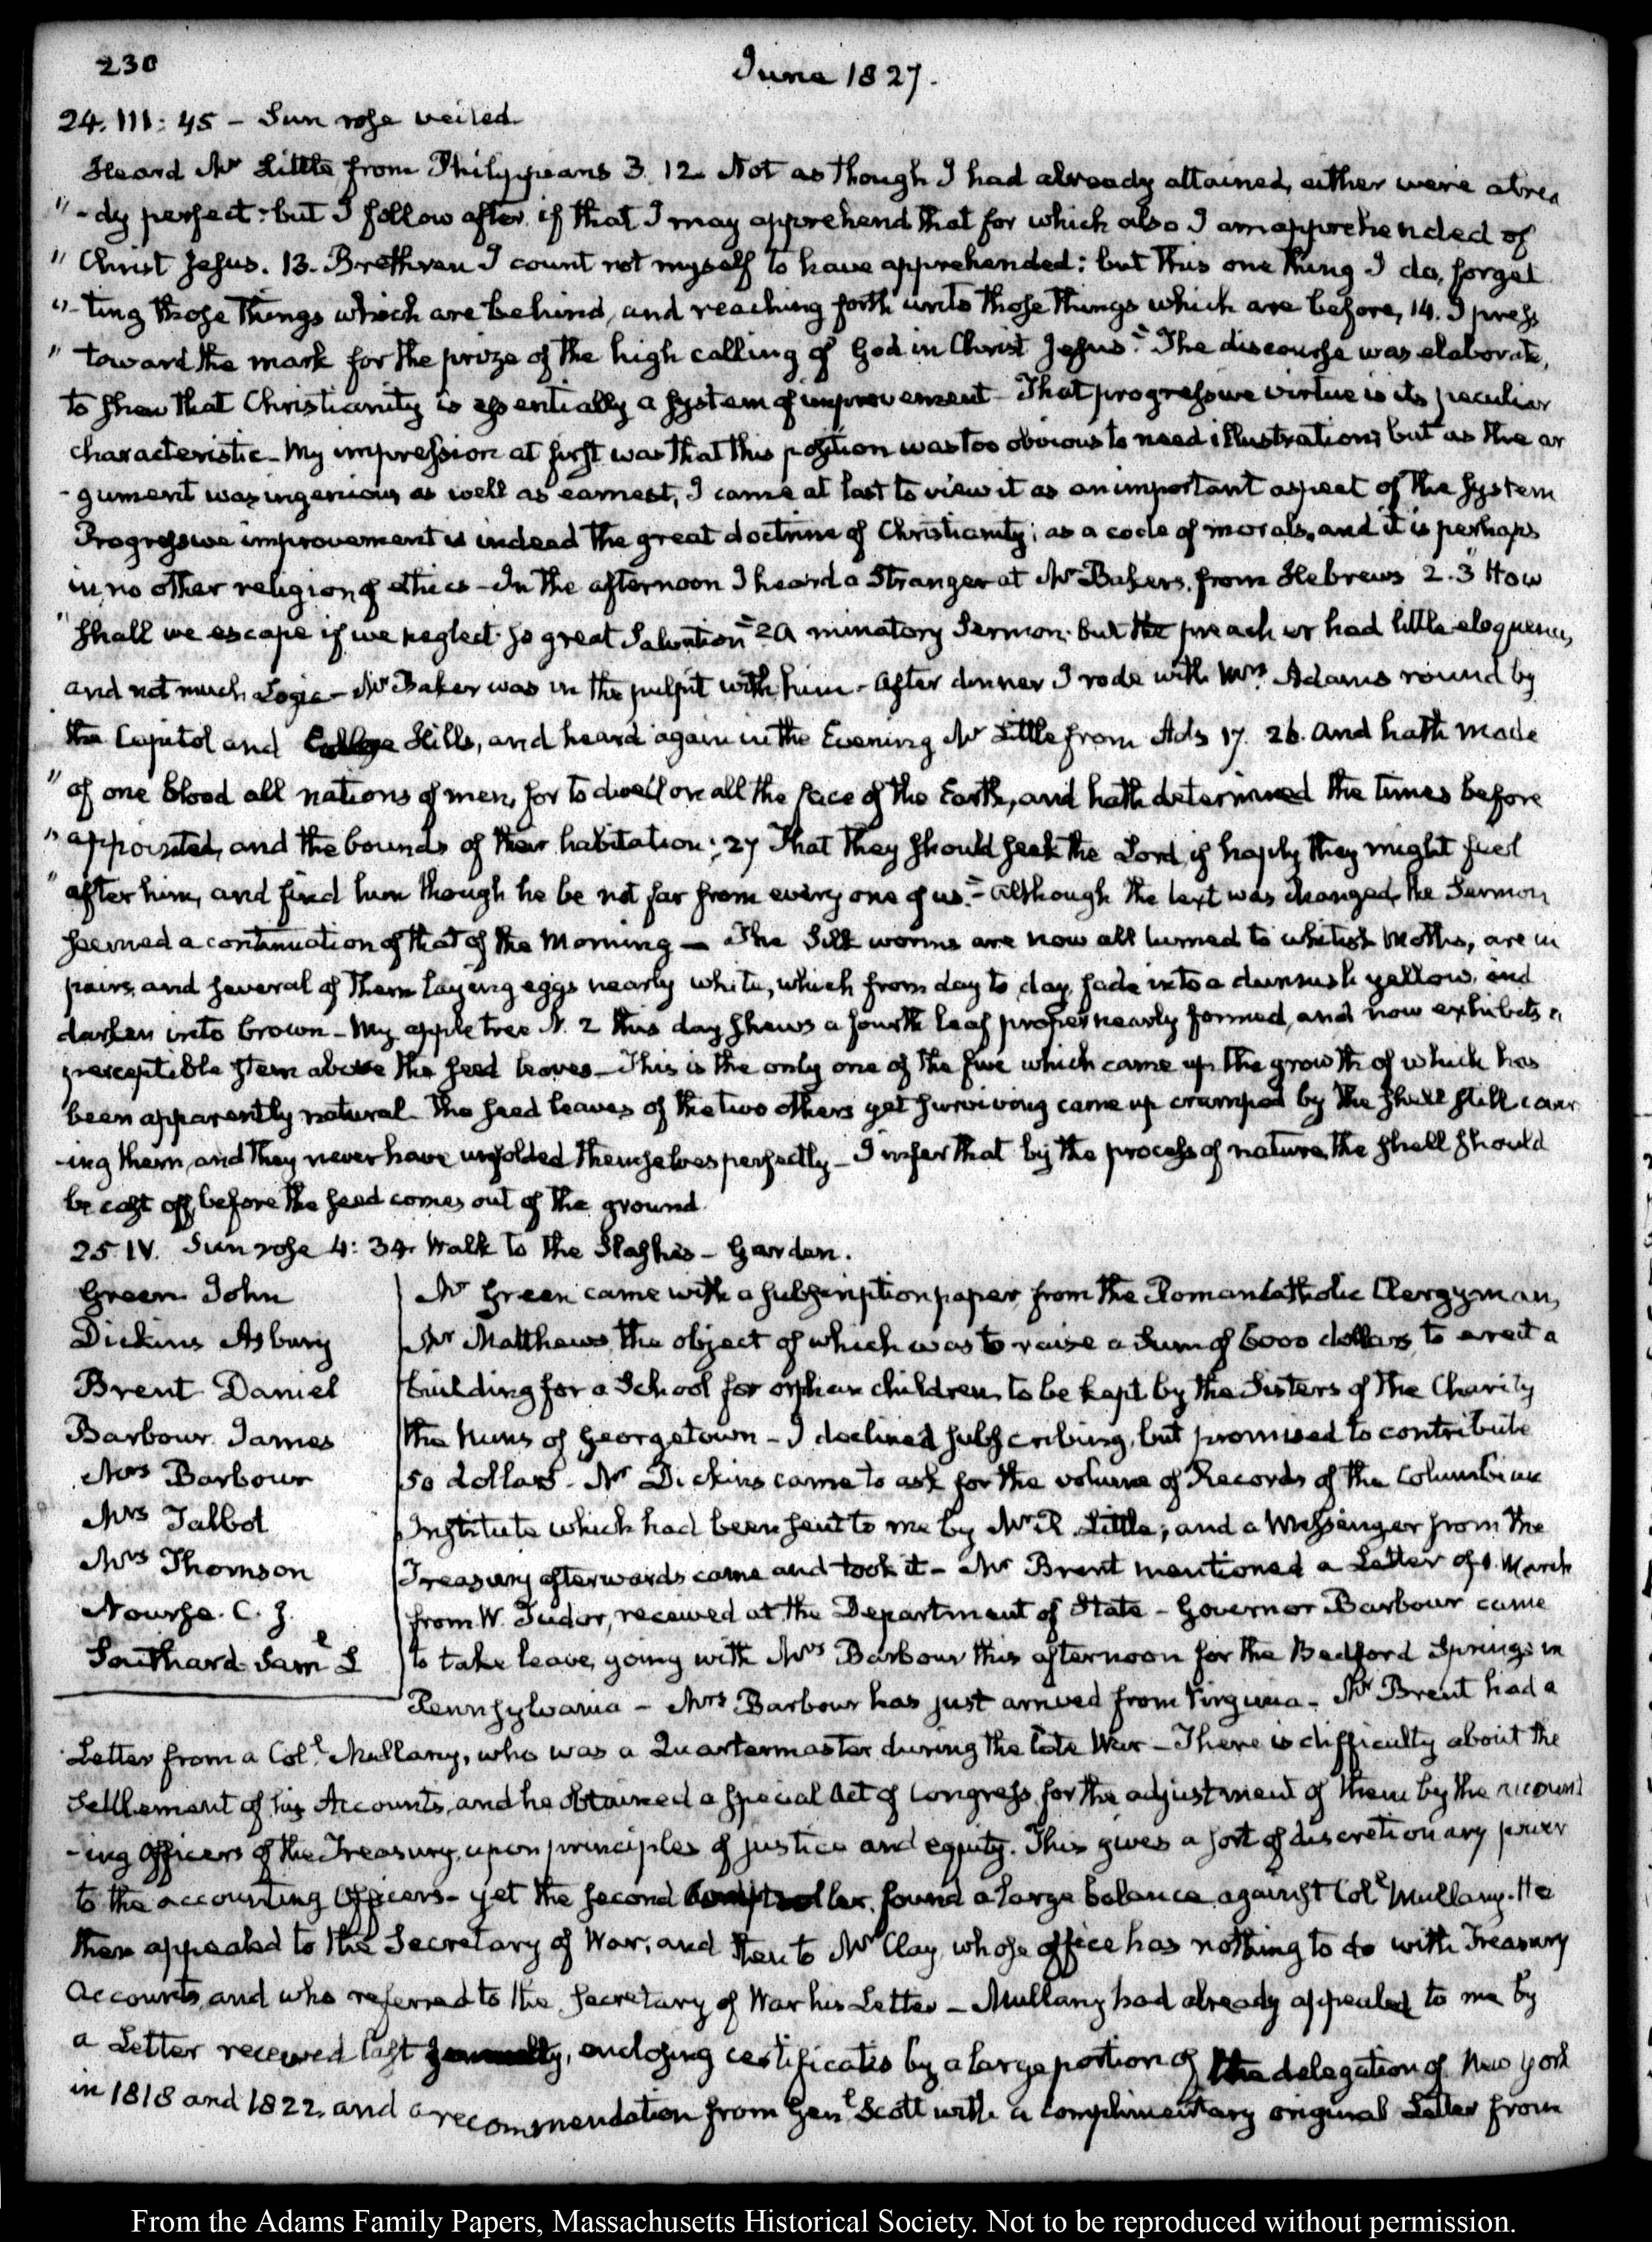 230
June 1827.
24. III: 45 – Sun rose veiled.
Heard Mr Little from Philippians 3. 12. Not as though I had already attained, either were alrea
" -dy perfect: but I follow after, if that I may apprehend that for which also I am apprehended of
" Christ Jesus. 13. Brethren I count not myself to have apprehended: but this one thing I do, forget
" -ting those things which are behind, and reaching forth unto those things which are before, 14. I press
" toward the mark for the prize of the high calling of God in Christ Jesus." The discourse was elaborate,
to shew that Christianity is essentially a system of improvement – That progressive virtue is its peculiar
characteristic – My impression at first was that this position was too obvious to need illustration; but as the ar
-gument was ingenious as well as earnest, I came at last to view it as an important aspect of the system
Progressive improvement is indeed the great doctrine of Christianity; as a code of morals, and it is perhaps
in no other religion of ethics – In the afternoon I heard a Stranger at Mr Baker's, from Hebrews 2. 3 " How
" shall we escape if we neglect so great Salvation" – A minatory Sermon; but the preacher had little eloquence,
and not much Logic – Mr Baker was in the pulpit with him – After dinner I rode with Mrs. Adams round by
the Capitol and College Hills, and heard again in the Evening Mr Little from Acts 17. 26. And hath made
" of one blood all nations of men, for to dwell on all the face of the Earth, and hath determined the times before
" appointed, and the bounds of their habitation; 27 That they should seek the Lord, if haply they might feel
" after him, and find him though he be not far from every one of us." – Although the text was changed, the Sermon
seemed a continuation of that of the Morning – The Silk worms are now all turned to whitish Moths, are in
pairs, and several of them laying eggs nearly white, which from day to day, fade into a dunnish yellow, and
darken into brown – My apple tree N. 2 this day shews a fourth leaf proper nearly formed, and now exhibits a
perceptible stem above the seed leaves – This is the only one of the five which came up, the growth of which has
been apparently natural. The seed leaves of the two others yet surviving came up cramped by the shell still cover
-ing them, and they never have unfolded themselves perfectly – I infer that by the process of nature, the shell should
be cast off, before the seed comes out of the ground.
25. IV. Sun rose 4: 34. Walk to the Slashes – Garden.
Green John
Dickins Asbury
Brent Daniel
Barbour James
Mrs Barbour
Mrs Talbot
Mrs Thomson
Nourse. C. J.
Southard Saml L
Mr Green came with a subscription paper, from the Roman Catholic Clergyman,
Mr Matthews, the object of which was to raise a sum of 6000 dollars, to erect a
building for a School for orphan children, to be kept by the Sisters of the Charity
the Nuns of Georgetown – I declined subscribing, but promised to contribute
50 dollars – Mr Dickins came to ask for the volume of Records of the Columbian
Institute which had been sent to me by Mr R. Little; and a Messenger from the
Treasury afterwards came and took it – Mr Brent mentioned a Letter of 1. March
from W. Tudor, received at the Department of State – Governor Barbour came
to take leave, going with Mrs Barbour this afternoon for the Bedford Springs in
Pennsylvania – Mrs Barbour has just arrived from Virginia – Mr Brent had a
Letter from a Coll Mullany, who was a Quartermaster during the late War – There is difficulty about the
Settlement of his Accounts, and he obtained a special Act of Congress, for the adjustment of them by the account
-ing Officers of the Treasury, upon principles of justice and equity. This gives a sort of discretionary power
to the accounting Officers – yet the second Comptroller, found a large balance against Coll Mullany. He
then appealed to the Secretary of War, and then to Mr Clay, whose office has nothing to do with Treasury
Accounts, and who referred to the Secretary of War his Letter – Mullany had already appealed to me by
a Letter received last, enclosing certificates by a large portion of the delegation of New York
in 1818 and 1822, and a recommendation from Genl Scott with a complimentary original Letter from
From the Adams Family Papers, Massachusetts Historical Society. Not to be reproduced without permission.